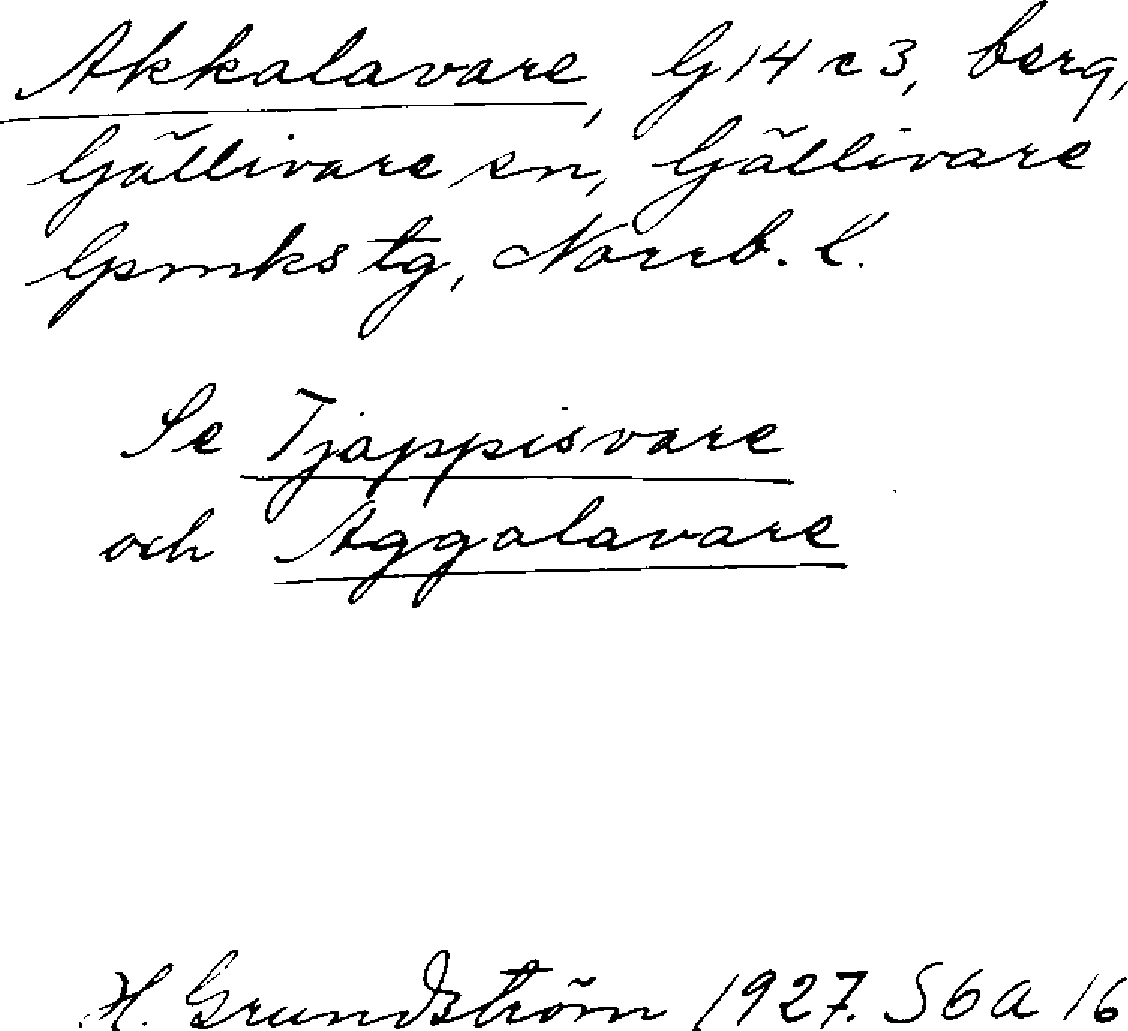 Akkalavare, G 14 c 3, berg,
Gällivare sn, Gällivare
lpmks tg, Norrb. l.
Se Tjappisvare
och Aggalavare
H. Grundström 1927. S 6 a 16